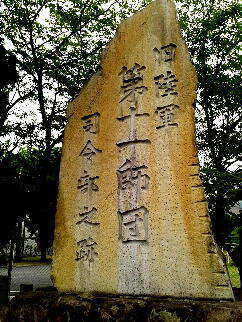 旧陸軍
第十一師団
司令部之跡